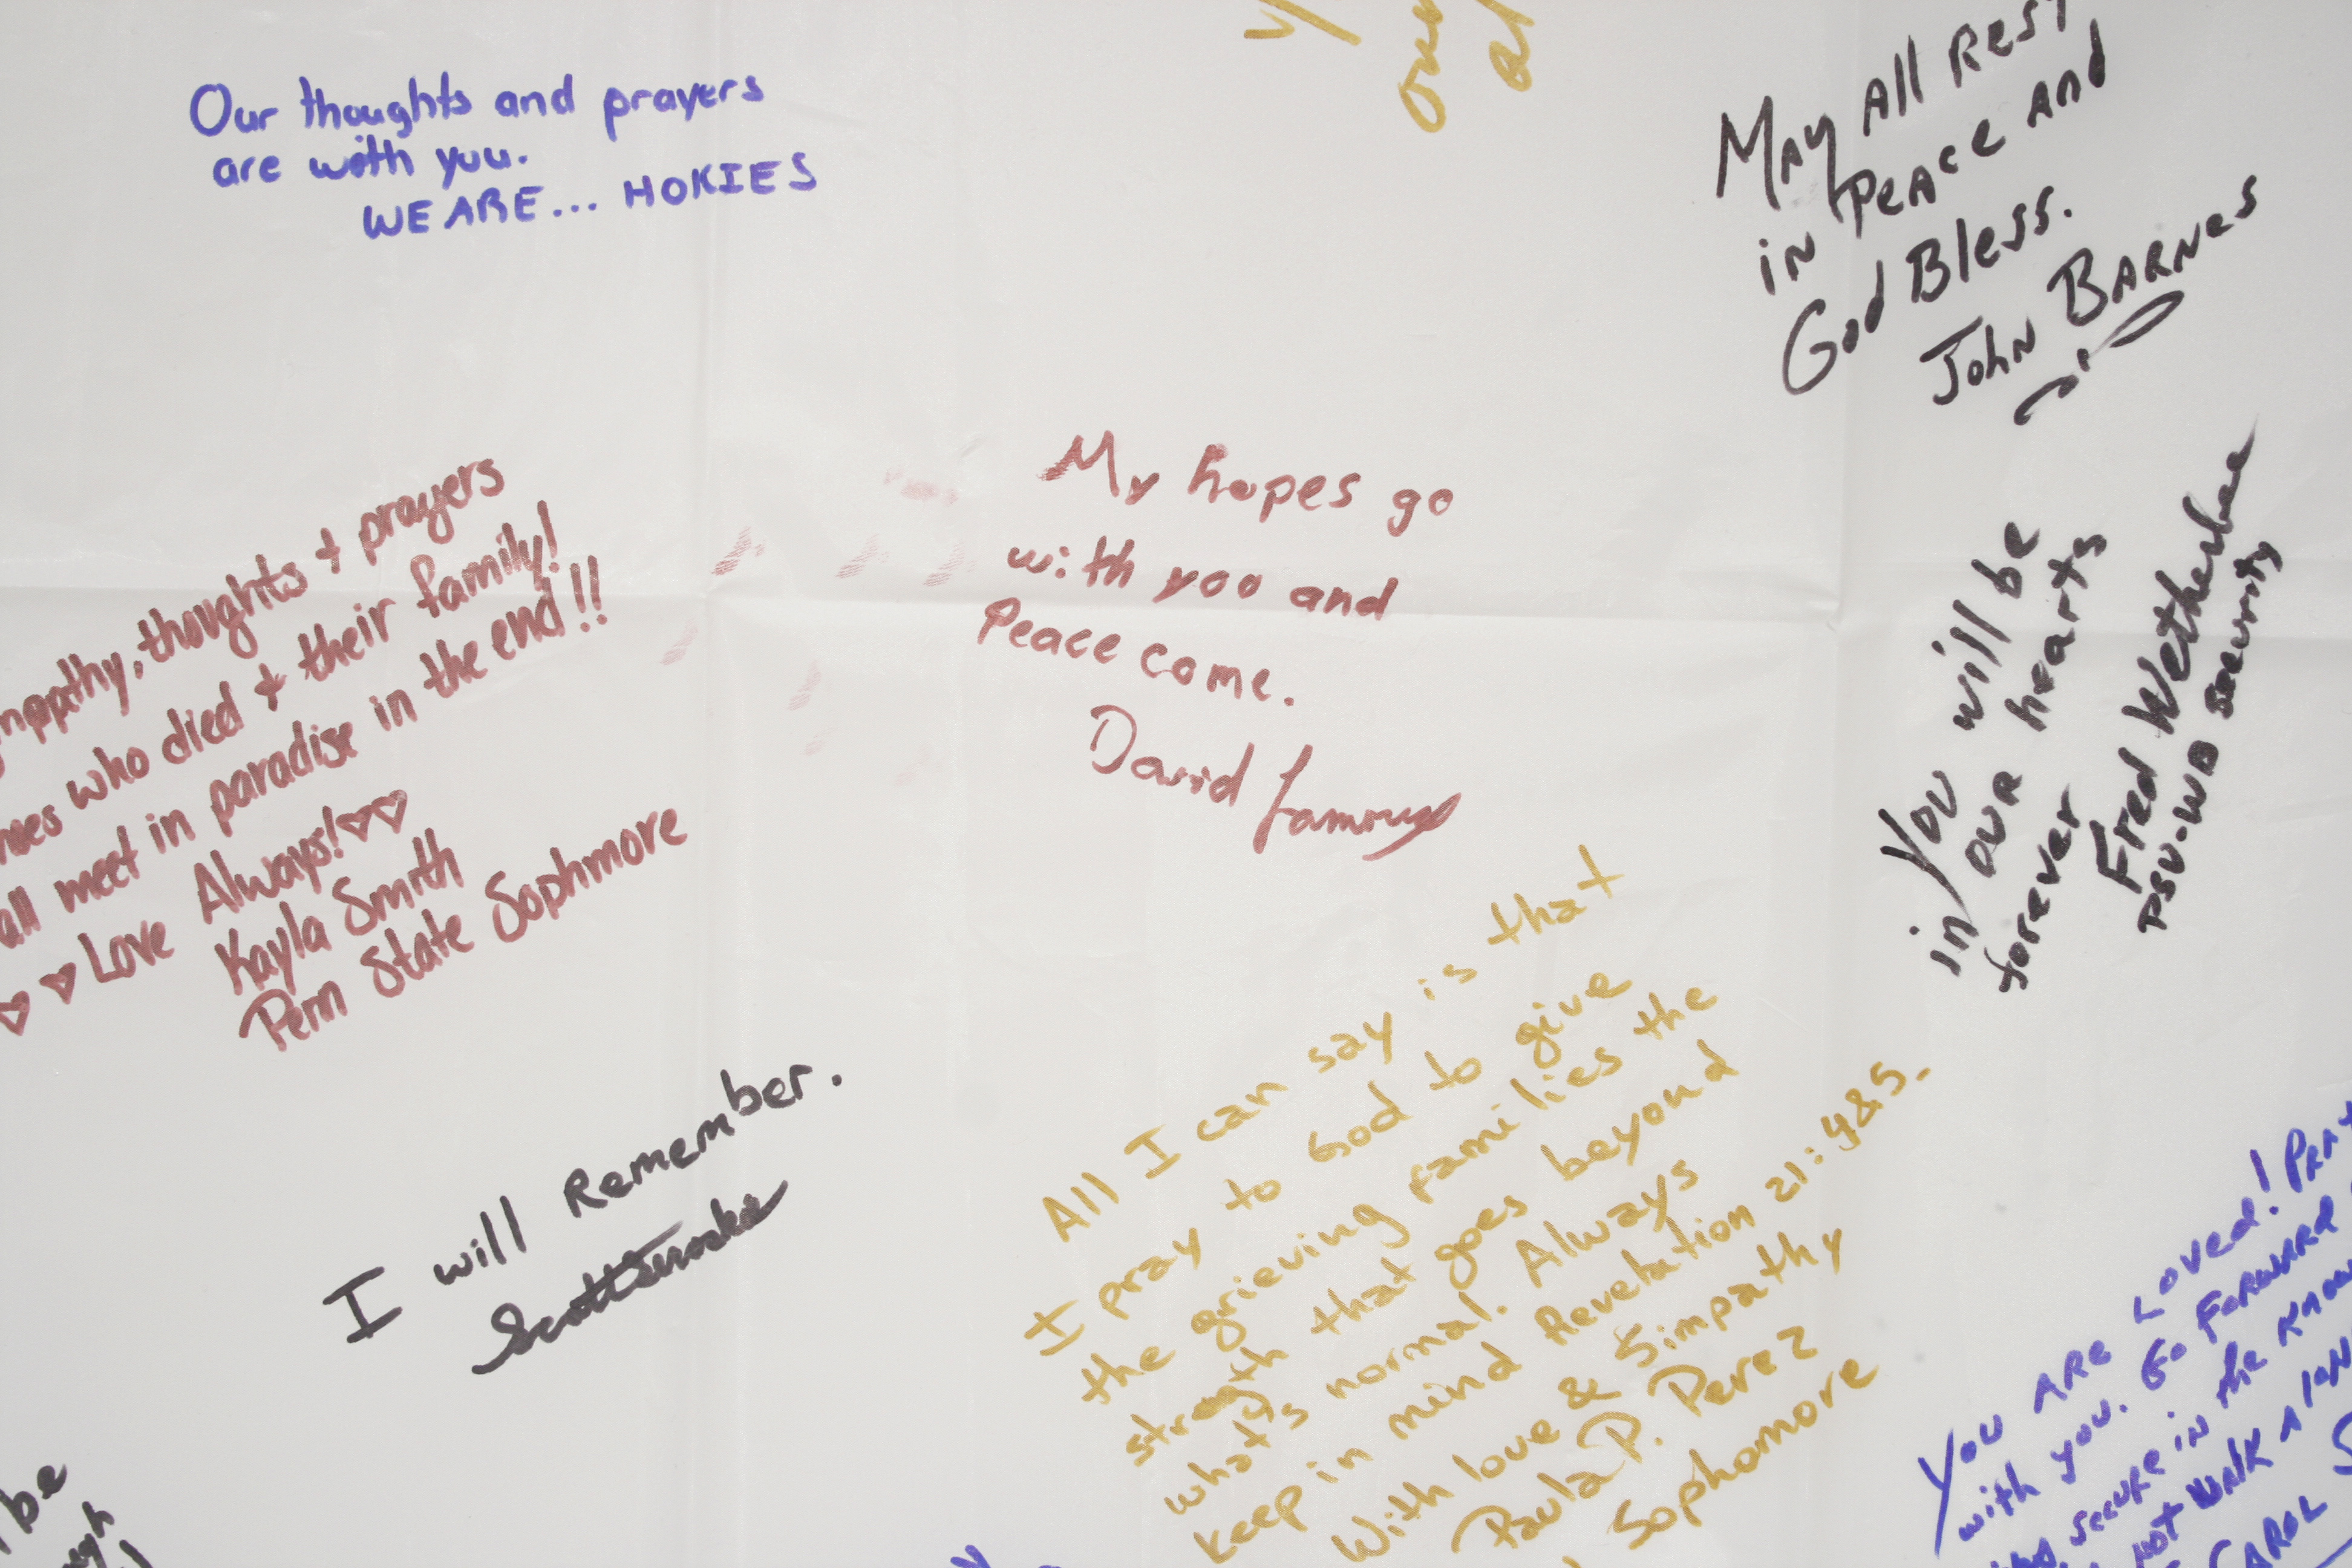 Our thoughts and prayers
are with you.
WE ARE... HOKIES
May All Rest
in Peace And
God Bless.
John Barnes
My hopes go
with you and
Peace come.
David
thoughts + prayers
who died + their family!
all meet in paradise in the end!!
Love Always!
Kayla Smith
Penn State Sophmore
You will be
in our hearts
forever
Fred Wetherbee
PSU-WB Security
I will Remember.
Scott
All I can say is that
I pray to God to give
the grieving families the
strength that goes beyond
what's normal. Always
keep in mind Revelation 21:4&5.
With love & Simpathy
Paula P. Perez
Sophomore
You Are Loved!
with you. Go Forward
secure in the
not walk
Carol
be